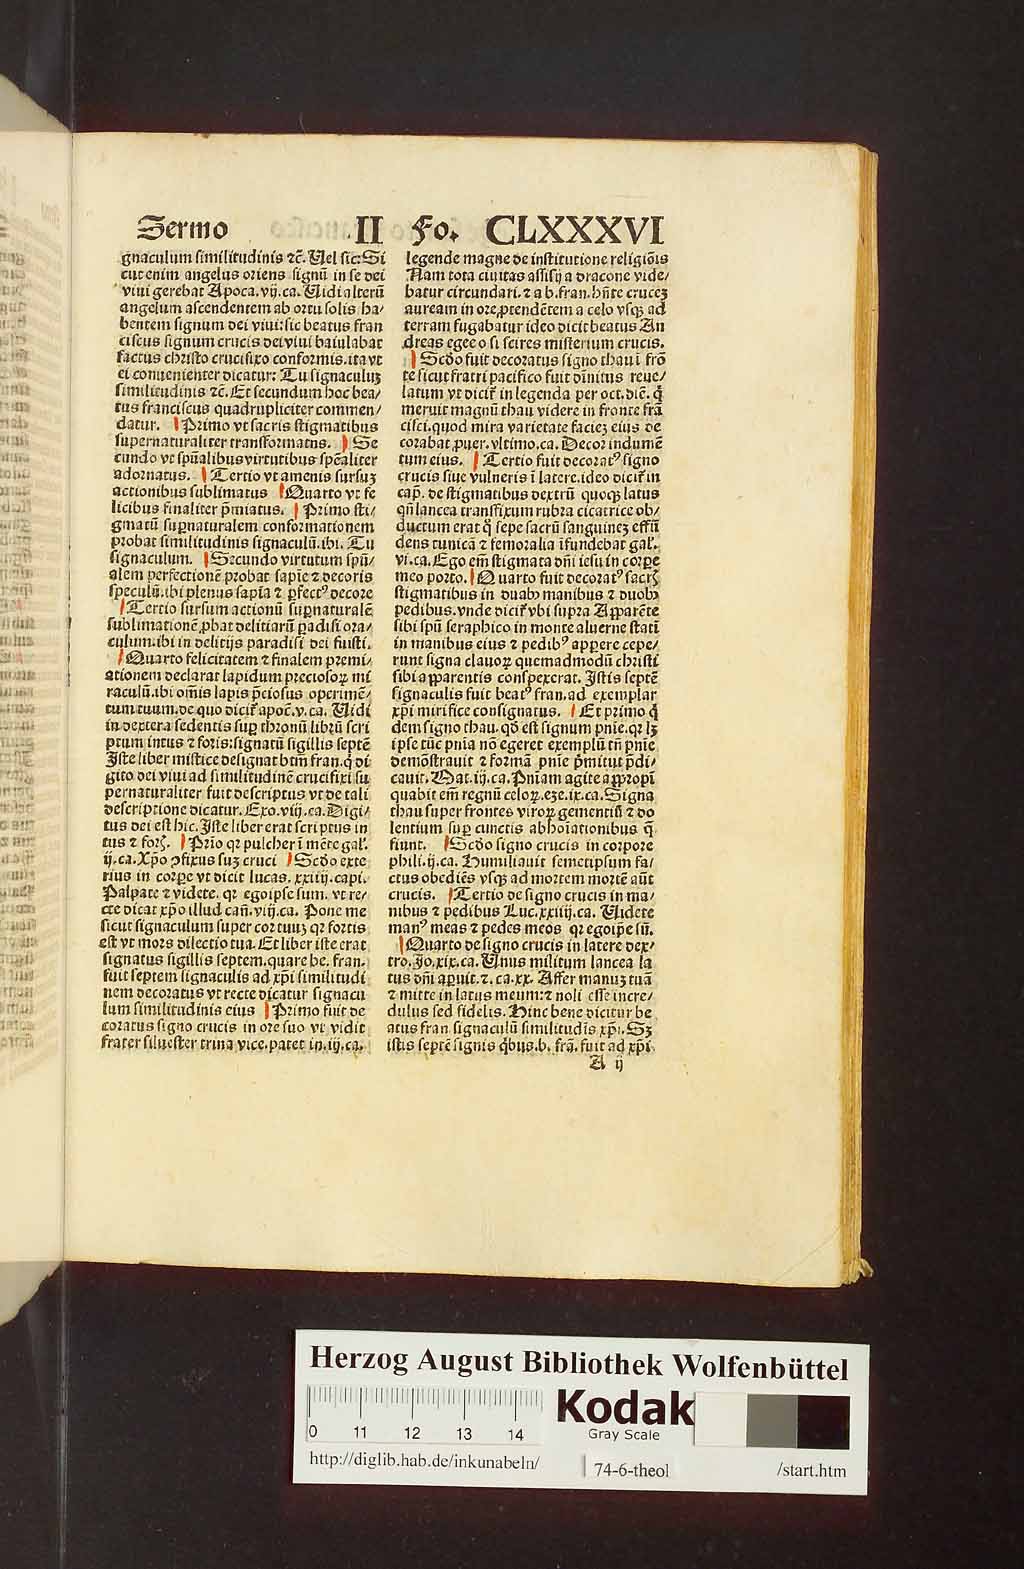 Sermo .II Fo. CLXXXVI
gnaculum similitudinis ⁊c̄. Uel sic: Si
cut enim angelus oriens signū in se dei
viui gerebat Apoca. vij. ca. Uidi alterū
angelum ascendentem ab ortu solis ha/
bentem signum dei viui: sic beatus fran
ciscus signum crucis dei viui baiulabat
factus christo crucifixo conformis. ita vt
ei conuenienter dicatur: Tu signaculuꝫ
similitudinis ⁊c̄. Et secundum hoc bea/
tus franciscus quadrupliciter commen/
datur. Primo vt sacris stigmatibus
supernaturaliter transformatus. Se
cundo vt spūalibus virtutibus spēaliter
adornatus. Tertio vt amenis sursuꝫ
actionibus sublimatus Quarto vt fe
licibus finaliter p̄miatus. Primo sti/
gmatū suꝑnaturalem conformationem
probat similitudinis signaculū. ibi. Tu
signaculum. Secundo virtutum spū/
alem perfectionē probat sapīe ⁊ decoris
speculū. ibi plenus sapīa ⁊ ꝑfectꝰ decore
Tertio sursum actionū suꝑnaturalē
sublimationē ꝓbat delitiarū ꝑadisi ora/
culum. ibi in delitijs paradisi dei fuisti.
Quarto felicitatem ⁊ finalem premi/
ationem declarat lapidum preciosoꝝ mi
raculū. ibi om̄is lapis p̄ciosus operimē/
tum tuum. de quo dicit̄ apoc̄. v. ca. Uidi
in dextera sedentis suꝑ thronū librū scri
ptum intus ⁊ foris: signatū sigillis septē
Iste liber mistice designat btm̄ fran. q̄ di
gito dei viui ad similitudinē crucifixi su
pernaturaliter fuit descriptus vt de tali
descriptione dicatur. Exo. viij. ca. Digi/
tus dei est hic. Iste liber erat scriptus in
tus ⁊ forꝭ. Prīo qꝛ pulcher ī mēte gal̄.
ij. ca. Xp̄o ꝯfixus suꝫ cruci Scd̄o exte
rius in corpe vt dicit lucas. xxiiij. capi.
Palpate ⁊ videte. qꝛ ego ipse sum. vt re/
cte dicat xp̄o illud cañ. viij. ca. Pone me
sicut signaculum super cor tuuꝫ qꝛ fortis
est vt mors dilectio tua. Et liber iste erat
signatus sigillis septem. quare be. fran.
fuit septem signaculis ad xp̄i similitudi
nem decoratus vt recte dicatur signacu
lum similitudinis eius Primo fuit de
coratus signo crucis in ore suo vt vidit
frater siluester trina vice. patet in. iij. ca.
legende magne de institutione religiōis
Nam tota ciuitas assisij a dracone vide/
batur circundari. ⁊ a b. fran. hn̄te cruceꝫ
auream in ore, ꝓtendētem a celo vsqꝫ ad
terram fugabatur ideo dicit beatus An
dreas egee o si scires misterium crucis.
Scd̄o fuit decoratus signo thau ī frō
te sicut fratri pacifico fuit dīnitus reue/
latum vt dicit̄ in legenda per oct. diē. q̄
meruit magnū thau videre in fronte frā
cisci. quod mira varietate facieꝫ eius de
corabat ꝓuer. vltimo. ca. Decor indumē
tum eius. Tertio fuit decoratꝰ signo
crucis siue vulneris ī latere. ideo dicit̄ in
cap̄. de stigmatibus dextrū quoqꝫ latus
qn̄ lancea transfixum rubra cicatrice ob/
ductum erat q̄ sepe sacrū sanguineꝫ effū
dens tunicā ⁊ femoralia īfundebat gal̄.
vi. ca. Ego em̄ stigmata dn̄i iesu in corpe
meo porto. Quarto fuit decoratꝰ sacrꝭ
stigmatibus in duabꝫ manibus ⁊ duobꝫ
pedibus. vnde dicit̄ vbi supra Apparēte
sibi spū seraphico in monte aluerne statī
in manibus eius ⁊ pedibꝰ apꝑere cepe/
runt signa clauoꝝ quemadmodū christi
sibi apparentis conspexerat. Istis septē
signaculis fuit beatꝰ fran. ad exemplar
xp̄i mirifice consignatus. Et primo q̄
dem signo thau. qd̄ est signum pnīe. qꝛ lꝫ
ipse tūc pnīa nō egeret exemplū tn̄ pnīe
demōstrauit ⁊ formā pnīe p̄mitus p̄di/
cauit. Mat. iij. ca. Pnīam agite apꝓpi
quabit em̄ regnū celoꝝ. eze. ix. ca. Signa
thau super frontes viroꝝ gementiū ⁊ do
lentium suꝑ cunctis abhoīationibus q̄
fiunt. Scd̄o signo crucis in corpore
phili. ij. ca. Humiliauit semetipsum fa/
ctus obediēs vsqꝫ ad mortem mortē aūt
crucis. Tertio de signo crucis in ma/
nibus ⁊ pedibus Luc. xxiiij. ca. Uidete
manꝰ meas ⁊ pedes meos qꝛ ego ip̄e sū.
Quarto de signo crucis in latere dex/
tro. Jo. xix. ca. Unus militum lancea la
tus dn̄i aꝑuit. ⁊. ca. xx. Affer manuꝫ tuā
⁊ mitte in latus meum: ⁊ noli esse incre/
dulus sed fidelis. Hinc bene dicitur be
atus fran. signaculū similitudīs xp̄i. Sꝫ
istis septē signis q̄bus. b. frā. fuit ad xp̄i
A ij
Herzog August Bibliothek Wolfenbüttel
0 11 12 13 14
Kodak
Gray Scale
http://diglib.hab.de/inkunabeln/ 74-6-theol /start.htm